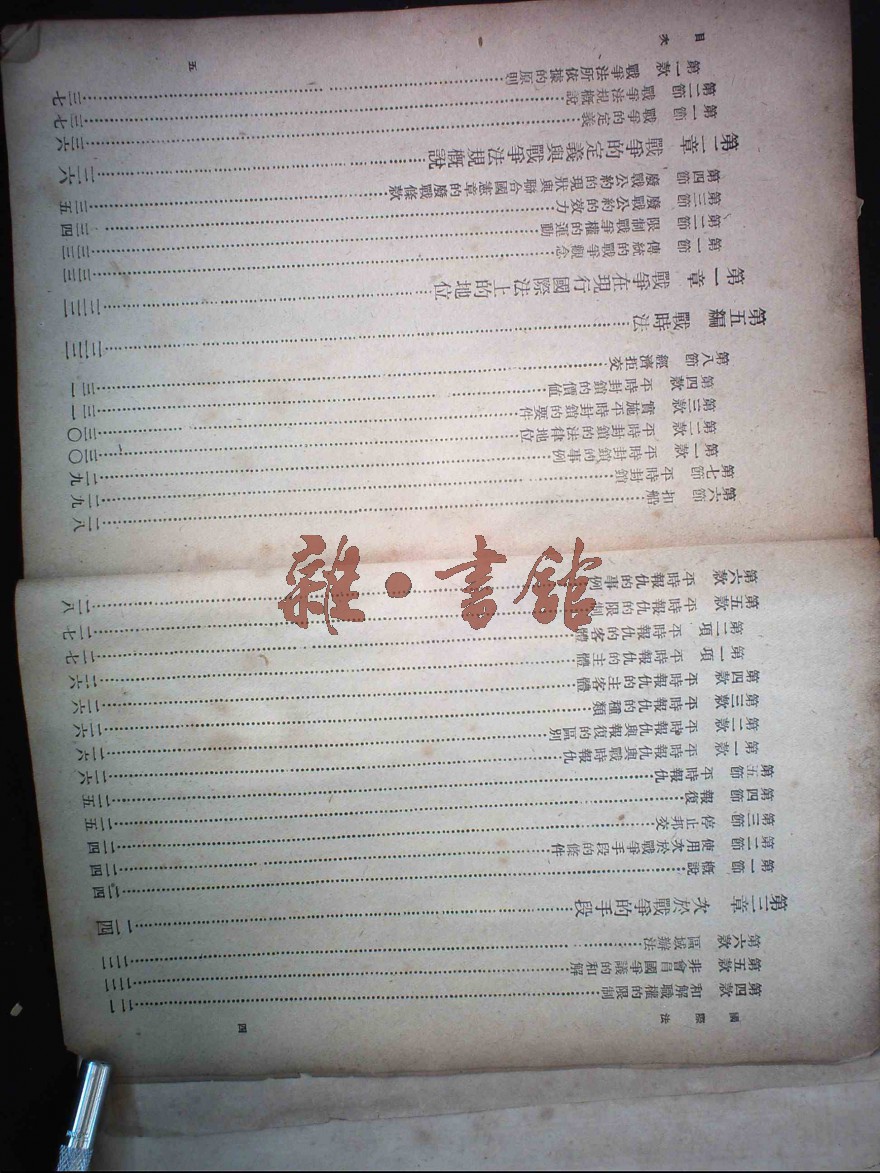 國際法 四
第四款 和解職權的限制……二一
第五款 非會員國爭議的和解……二二
第六款 區域辦法……二二
第三章 次於戰爭的手段……二四
第一節 概說……二四
第二節 使用次於戰爭手段的條件……二四
第三節 停止邦交……二四
第四節 報復……二五
第五節 平時報仇……二五
第一款 平時報仇與戰時報仇……二六
第二款 平時報仇與報復的區別……二六
第三款 平時報仇的種類……二六
第四款 平時報仇的主客體……二六
第一項 平時報仇的主體……二六
第二項 平時報仇的客體……二七
第五款 平時報仇的限制……二七
第六款 平時報仇的事例……二八
第六節 扣船……二八
第七節 平時封鎖……二九
第一款 平時封鎖的事例……二九
第二款 平時封鎖的法律地位……三〇
第三款 實施平時封鎖的要件……三〇
第四款 平時封鎖的價值……三一
第八節 經濟拒交……三一
第五編 戰時法……三三
第一章 戰爭在現行國際法上的地位……三三
第一節 傳統的戰爭觀念……三三
第二節 限制戰爭權的運動……三三
第三節 廢戰公約的效力……三四
第四節 廢戰公約的現狀與聯合國憲章的廢戰條款……三五
第二章 戰爭的定義與戰爭法規概說……三六
第一節 戰爭的定義……三六
第二節 戰爭法規概說……三七
第一款 戰爭法所依據的原則……三七
目次 五
雜·書館